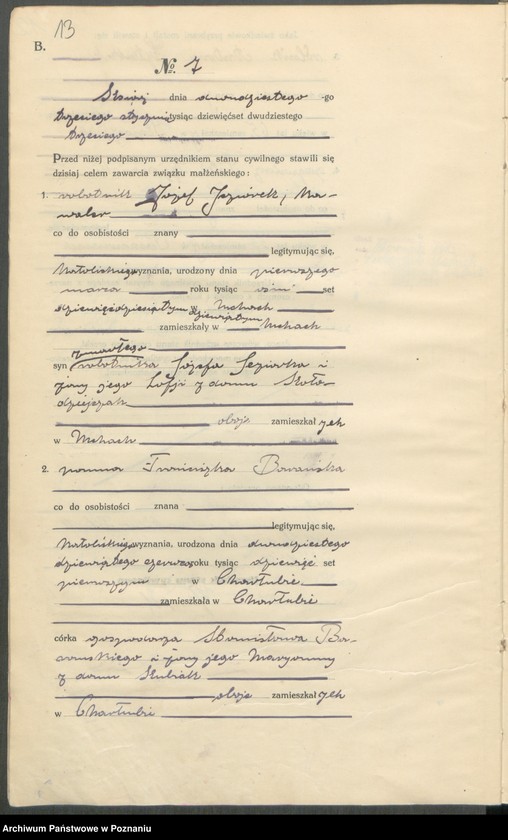 13
B.
№. 7
dnia dwudziestego -go
trzeciego stycznia tysiąc dziewięćset dwudziestego
trzeciego
Przed niżej podpisanym urzędnikiem stanu cywilnego stawili się
dzisiaj celem zawarcia związku małżeńskiego:
1. robotnik Józef Jeziorek, ka-
waler
co do osobistości znany
legitymując się,
katolickiego wyznania, urodzony dnia pierwszego
marca roku tysiąc ośm set
dziewięćdziesiątym w Mchach
dziewiątym
zamieszkały w Mchach
zmarłego
syn robotnika Józefa Jeziorka i
żony jego Zofji z domu
oboje zamieszkał ych
w Mchach
2. panna Franciszka
co do osobistości znana
legitymując się,
katolickiego wyznania, urodzona dnia dwudziestego
dziewiątego czerwca roku tysiąc dziewięć set
pierwszym w Chwałubie
zamieszkała w Chwałubie
córka gospodarza Stanisława
i żony jego Maryanny
z domu Kubiak
oboje zamieszkał ych
w Chwałubie
Archiwum Państwowe w Poznaniu